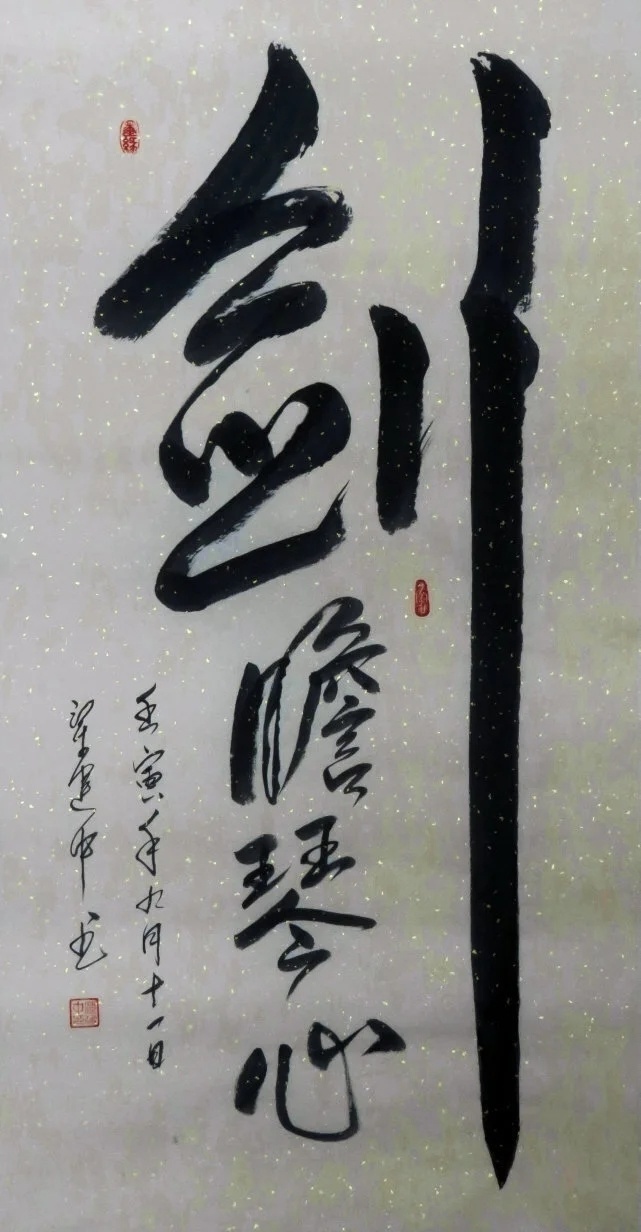 剑膽琴心
壬寅年九月十一日
梁建中书